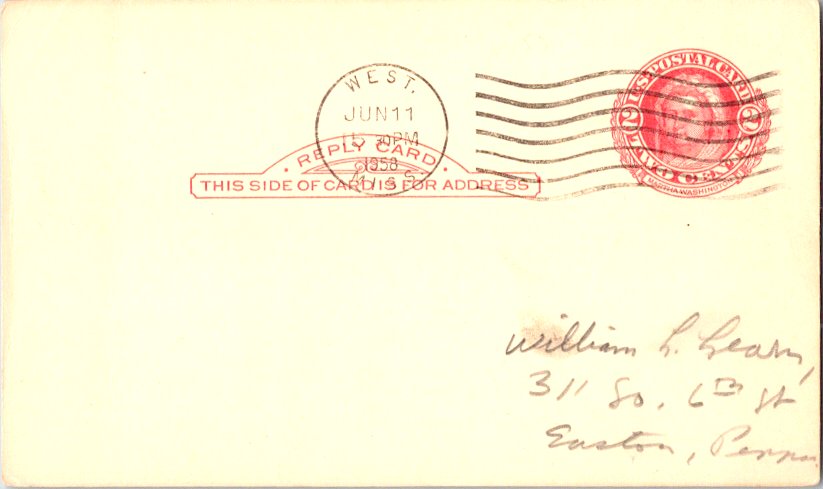 WEST.
JUN 11
PM
1958
MISS.
U.S. POSTAL CARD
2 2
TWO CENTS
MARTHA WASHINGTON
REPLY CARD
THIS SIDE OF CARD IS FOR ADDRESS
William L. Learn,
311 So. 6th St
Easton, Penna